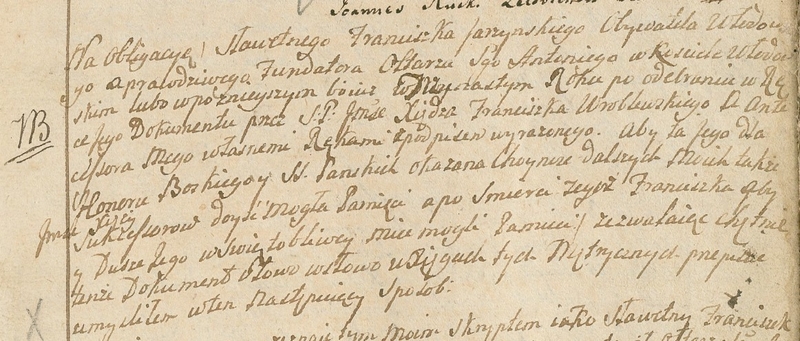 Joannes
Na Obligacyę Sławetnego Franciszka Jarzynskiego Obywatela
go a prawdziwego Fundatora Ołtarza Sgo Antoniego w Kosciele
skim lubo w pozniejszym bo iuz Roku po odebraniu w Rę
ce Jego Dokumentu przez S.P. Jmsc Xiędza Franciszka Wroblewskiego Ante
NB
cessora mego własnemi Rękami z podpisem wyrazonego. Aby ta Jego dla
Honoru Boskiego y SS. Panskich okazana dalszych moich także
Jmsc Xięzy
Sukcessorow doyść mogła Pamięci a po Smierci tegoż Franciszka aby
y Duszę Jego w Swiętobliwey mogli Pamięci zezwalaiąc chętnie
tenże Dokument słowo w słowo w Xięgach tych Metrycznych przepisac
umysliłem w ten następuiący sposob:
tym moim skryptem iako Sławetny Franciszek